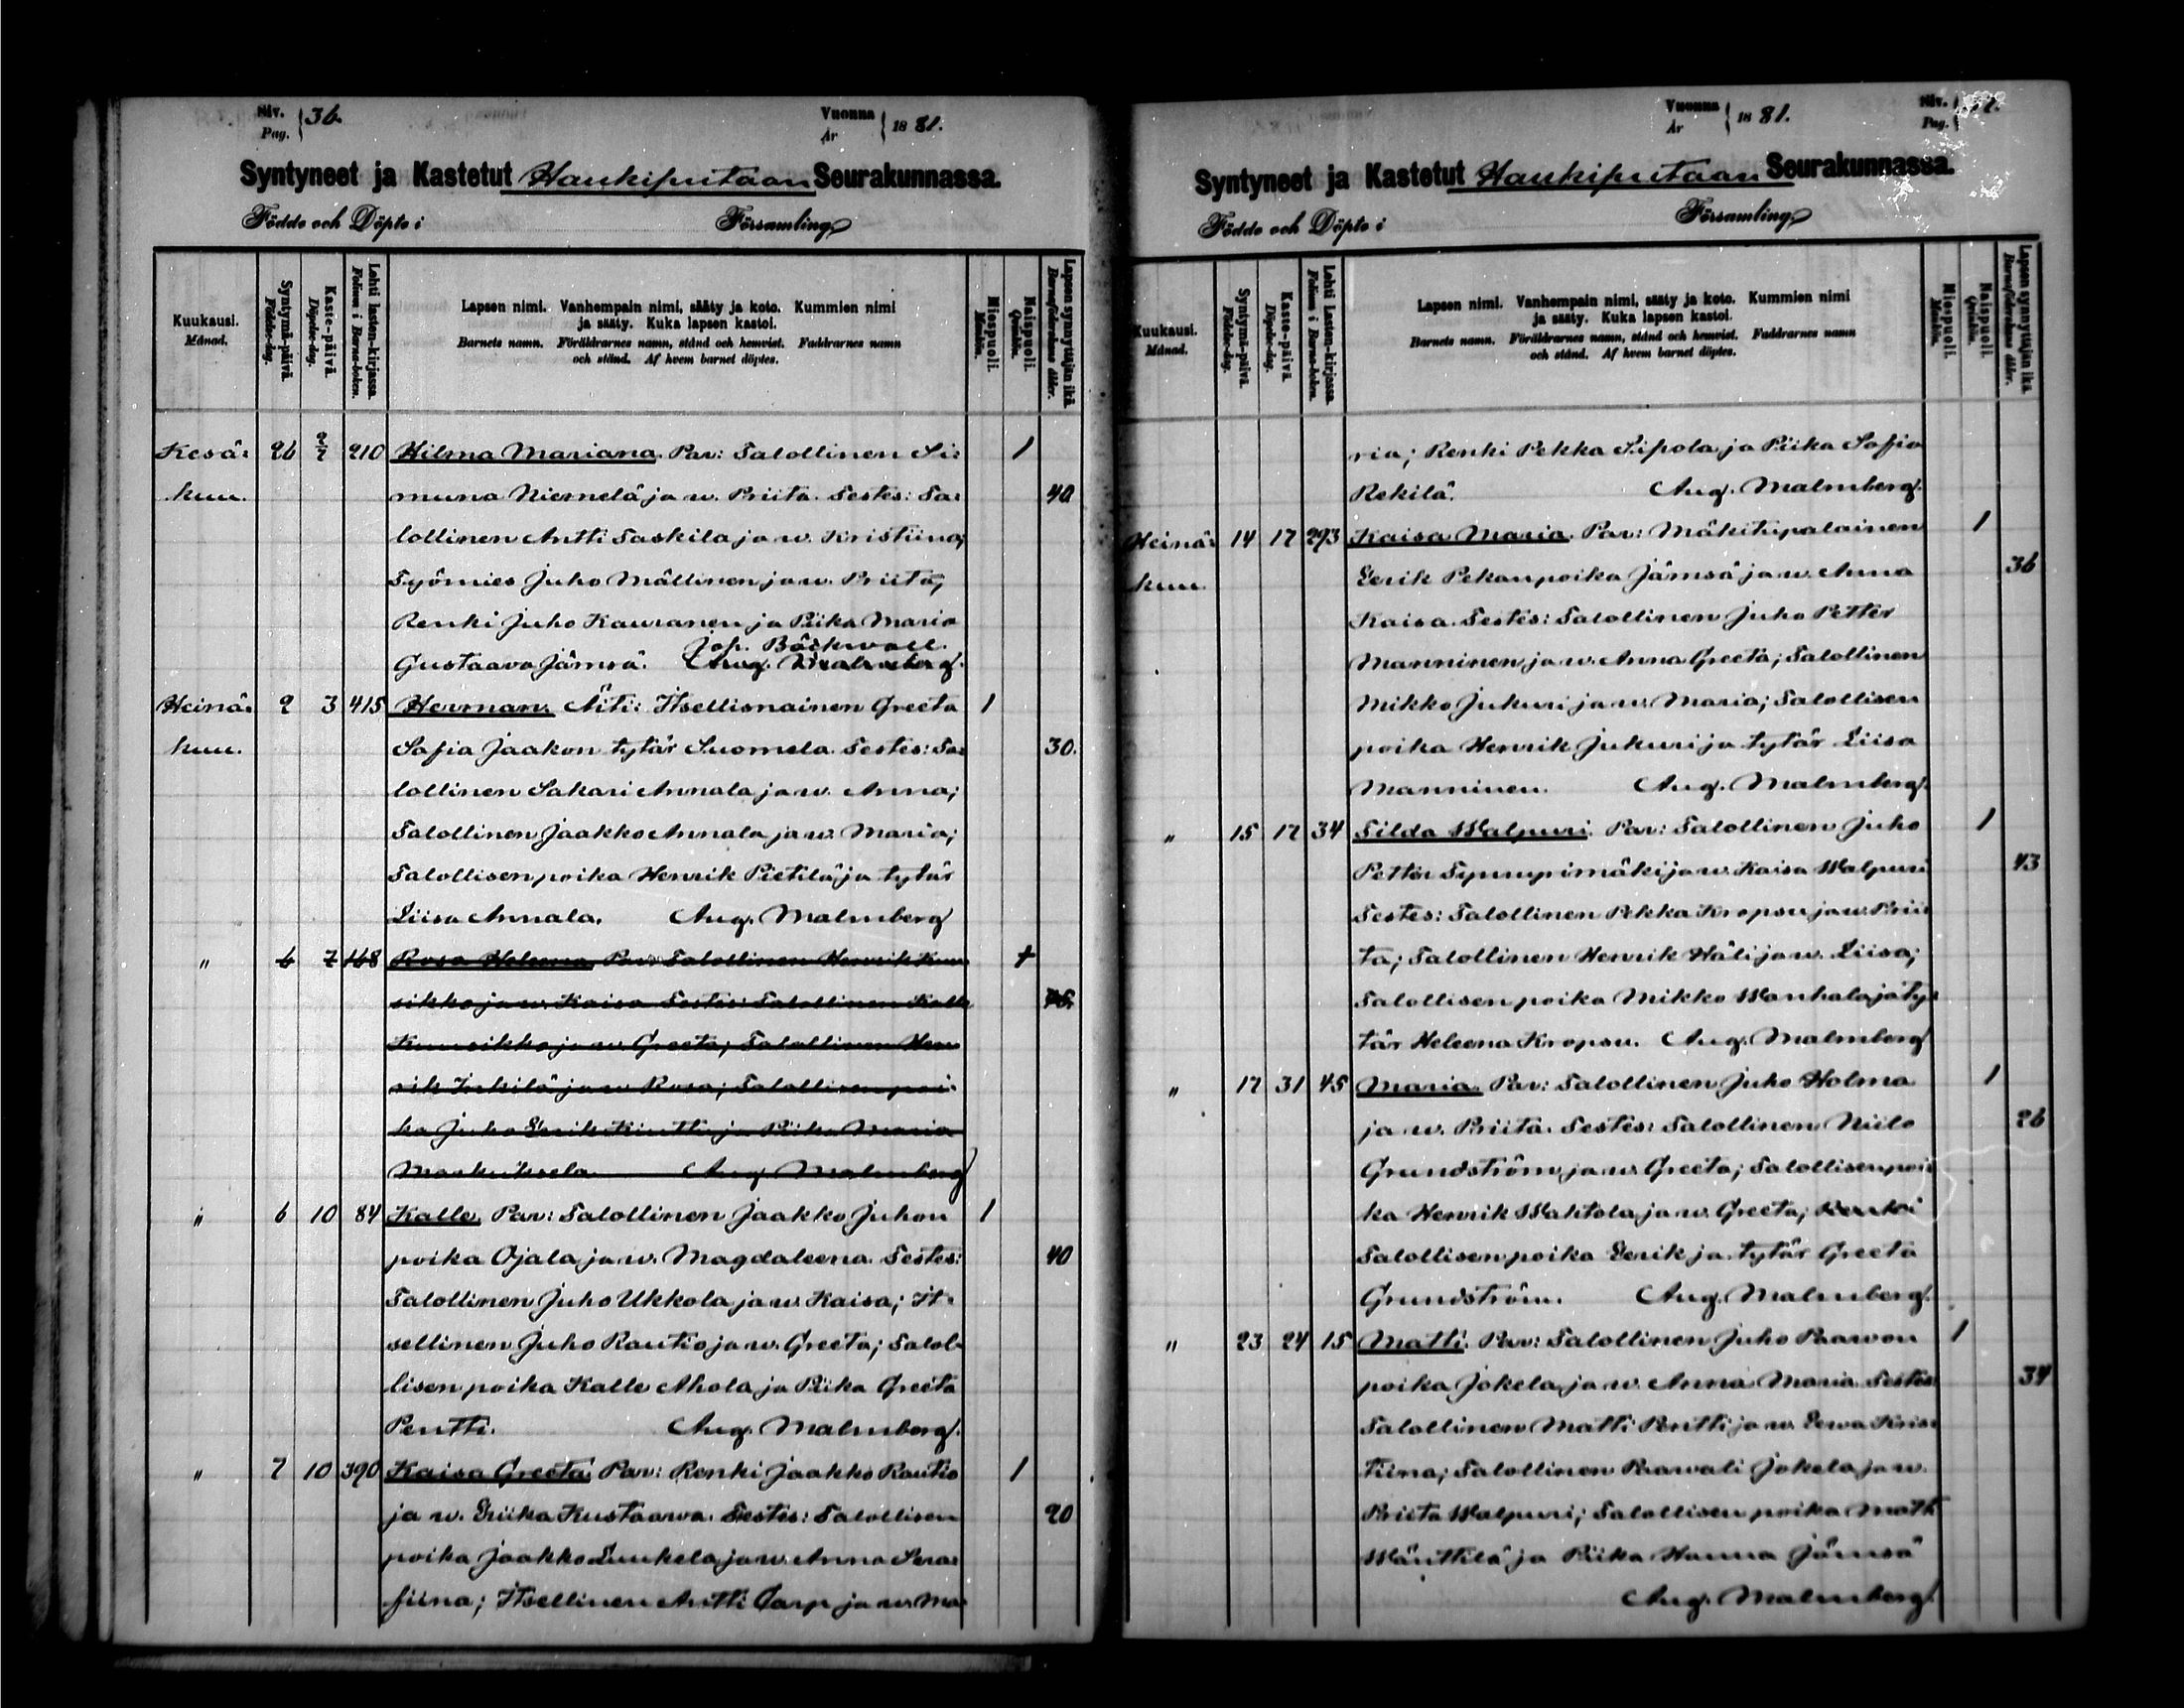 Siv. Pag. 36. Vuonna År 1881.
Syntyneet ja Kastetut Haukiputaan Seurakunnassa.
Födde och Döpte i Församling
Kuukausi. Månad.
Syntymä-päivä. Födelse-dag.
Kaste-päivä. Döpelse-dag.
Lehti lasten-kirjassa. Folium i Barna-boken.
Lapsen nimi. Vanhempain nimi, sääty ja koto. Kummien nimi
ja sääty. Kuka lapsen kastoi.
Barnets namn. Föräldrarnes namn, stånd och hemvist. Faddrarnes namn
och stånd. Af hvem barnet döptes.
Miespuoli. Mankön.
Naispuoli. Qvinkön.
Lapsen synnyttäjän ikä. Barnaföderskans ålder.
Kesä= 26 2/7 210 Hilma Mariana. Par: Talollinen Si= 1
kuu. muna Niemelä ja w. Priita. Testes: Ta= 40
lollinen Antti Taskila ja w. Kristiina;
Työmies Juho Mällinen ja w. Priita;
Renki Juho Kauranen ja Piika Maria
Joh. Bäckwall.
Gustaava Jämsä. Aug. Malmberg.
Heinä= 2 3 415 Herman. Äiti: Itsellisnainen Greeta 1
kuu. Sofia Jaakon tytär Suomela. Testes: Ta= 30.
lollinen Sakari Annala ja w. Anna;
Talollinen Jaakko Annala ja w. Maria;
Talollisen poika Henrik Pietilä ja tytär
Liisa Annala. Aug. Malmberg
" 6 7 168 Rosa Helena. Par: Talollinen Henrik Kuu= 1
sikko ja w. Kaisa Testes: Talollinen Kalle
Kuusikko ja w. Greeta; Talollinen Hen
rik Inkilä ja w. Rosa; Talollisen poi=
ka Juho Eerik Kiutti ja Piika Maria
Aug Malmberg
" 6 10 84 Kalle. Par: Talollinen Jaakko Juhon 1
poika Ojala ja w. Magdaleena. Testes: 40
Talollinen Juho Ukkola ja w. Kaisa; It=
sellinen Juho Rautio ja w. Greeta; Talol=
lisen poika Kalle Ahola ja Piika Greeta
Pentti. Aug. Malmberg.
" 7 10 390 Kaisa Greeta Par: Renki Jaakko Rautio 1
ja w. Eriika Kustaawa. Testes: Talollisen 20
poika Jaakko Luukela ja w. Anna Sera=
fiina; Itsellinen Antti Carp ja w. Ma=
Vuonna År 1881. Siv. Pag.
Syntyneet ja Kastetut Haukiputaan Seurakunnassa.
Födde och Döpte i Församling
Kuukausi. Månad.
Syntymä-päivä. Födelse-dag.
Kaste-päivä. Döpelse-dag.
Lehti Lasten-kirjassa. Folium i Barna-boken.
Lapsen nimi. Vanhempain nimi, sääty ja koto. Kummien nimi
ja sääty. Kuka lapsen kastoi.
Barnets namn. Föräldrarnes namn, stånd och hemvist. Faddrarnes namn
och stånd. Af hvem barnet döptes.
Miespuoli. Mankön.
Naispuoli. Qvinkön.
Lapsen synnyttäjän ikä. Barnaföderskans ålder.
ria; Renki Pekka Sipola ja Piika Sofia
Rekilä. Aug. Malmberg.
Heinä= 14 17 293 Kaisa Maria. Par: Mäkitupalainen 1
kuu. Eerik Pekan poika Jämsä ja w. Anna 36
Kaisa. Testes: Talollinen Juho Petter
Manninen ja w. Anna Greeta; Talollinen
Mikko Jukuri ja w. Maria; Talollisen
poika Henrik Jukuri ja tytär Liisa
Manninen. Aug. Malmberg.
" 15 17 34 Tilda Walpuri. Par: Talollinen Juho 1
Petter Sypunpimäki ja w. Kaisa Walpuri 43
Testes: Talollinen Pekka Kropsu ja w. Prii=
ta; Talollinen Henrik Häli ja w. Liisa;
Talollisen poika Mikko Wanhala ja ty=
tär Heleena Kropsu. Aug. Malmberg
" 17 31 45 Maria. Par: Talollinen Juho Holma 1
ja w. Priita. Testes: Talollinen Niilo 26
Grundström ja w. Greeta; Talollisen poi=
ka Henrik Wahtola ja w. Greeta;
Talollisen poika Eerik ja tytär Greeta
Grundström. Aug. Malmberg.
" 23 24 15 Matti. Par: Talollinen Juho Paawon 1
poika Jokela ja w. Anna Maria Testes: 34
Talollinen Matti Pentti ja w. Eewa Kris=
tiina; Talollinen Paawali Jokela ja w.
Priita Walpuri; Talollisen poika Matti
Wänttilä ja Piika Hanna Jämsä
Aug. Malmberg.